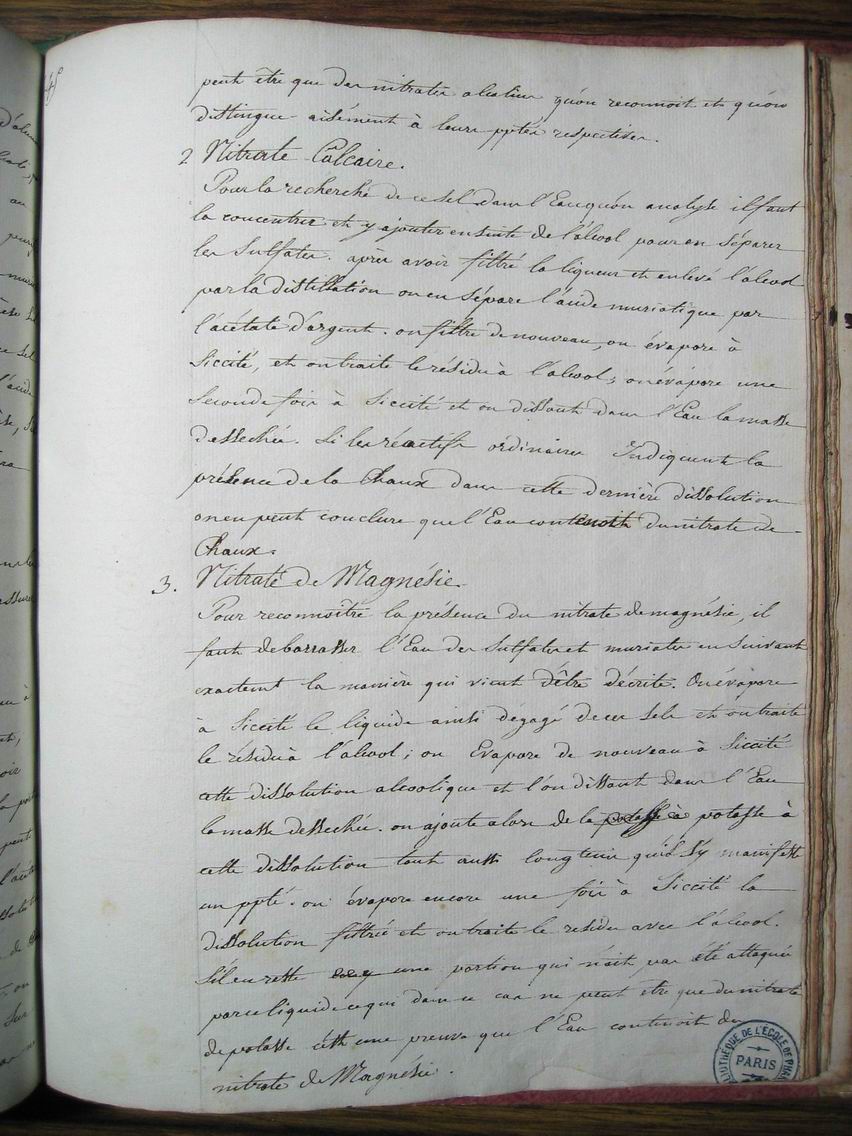 peut être que des nitrates alcalins qu'on reconnoit et qu'on
distingue aisément à leurs pptés respectives.
2 Nitrate Calcaire.
Pour la recherche de ce sel dans l'Eau qu'on analyse il faut
la concentrer et y ajouter ensuite de l'alcool pour en séparer
les Sulfates. après avoir filtré la liqueur et enlevé l'alcool
par la distillation on en sépare l'acide muriatique par
l'acétate d'argent. on filtre de nouveau, on évapore à
Siccité, et on traite le résidu à l'alcool; on évapore une
Seconde fois à Siccité et on dissout dans l'Eau la masse
dessechée. Si les réactifs ordinaires Indiquent la
présence de la Chaux dans cette dernière dissolution
on en peut conclure que l'Eau contenoit du nitrate de
Chaux.
3. Nitrate de Magnésie.
Pour reconnoître la présence du nitrate de magnésie, il
faut debarrasser l'Eau des Sulfates et muriates en suivant
exactemt la manière qui vient d'être décrite. On évapore
à Siccité le liquide ainsi dégagé de ces Sels et on traite
le résidu à l'alcool; on Evapore de nouveau à Siccité
cette dissolution alcoolique et l'on dissout dans l'Eau
la masse dessechée. on ajoute alors de la potasse à potasse à
cette dissolution tant aussi longtems qu'il s'y manifeste
un ppté. on évapore encore une fois à Siccité la
dissolution filtrée et on traite le residu avec l'alcool.
S'il en reste une portion qui n'ait pas été attaquée
par ce liquide ce qui dans ce cas ne peut être que du nitrate
de potasse c'est une preuve que l'Eau contenoit du
nitrate de Magnésie.
BIBLIOTHÈQUE DE L'ÉCOLE DE PHA
PARIS